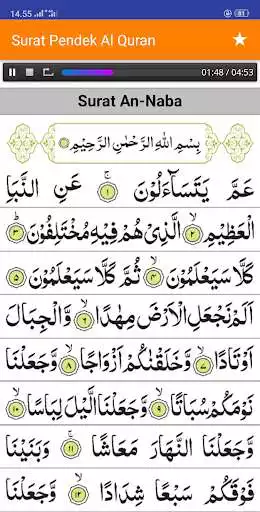 14.55
Surat Pendek Al Quran
01:48 / 04:53
Surat An-Naba
بِسْمِ اللهِ الرَّحْمٰنِ الرَّحِيْمِ
عَمَّ يَتَسَآءَلُوْنَ ۝١ عَنِ النَّبَاِ
الْعَظِيْمِ ۝٢ الَّذِيْ هُمْ فِيْهِ مُخْتَلِفُوْنَ ۝٣
كَلَّا سَيَعْلَمُوْنَ ۝٤ ثُمَّ كَلَّا سَيَعْلَمُوْنَ ۝٥
اَلَمْ نَجْعَلِ الْاَرْضَ مِهٰدًا ۝٦ وَّالْجِبَالَ
اَوْتَادًا ۝٧ وَّخَلَقْنٰكُمْ اَزْوَاجًا ۝٨ وَّجَعَلْنَا
نَوْمَكُمْ سُبَاتًا ۝٩ وَّجَعَلْنَا الَّيْلَ لِبَاسًا ۝١٠
وَّجَعَلْنَا النَّهَارَ مَعَاشًا ۝١١ وَّبَنَيْنَا
فَوْقَكُمْ سَبْعًا شِدَادًا ۝١٢ وَّجَعَلْنَا